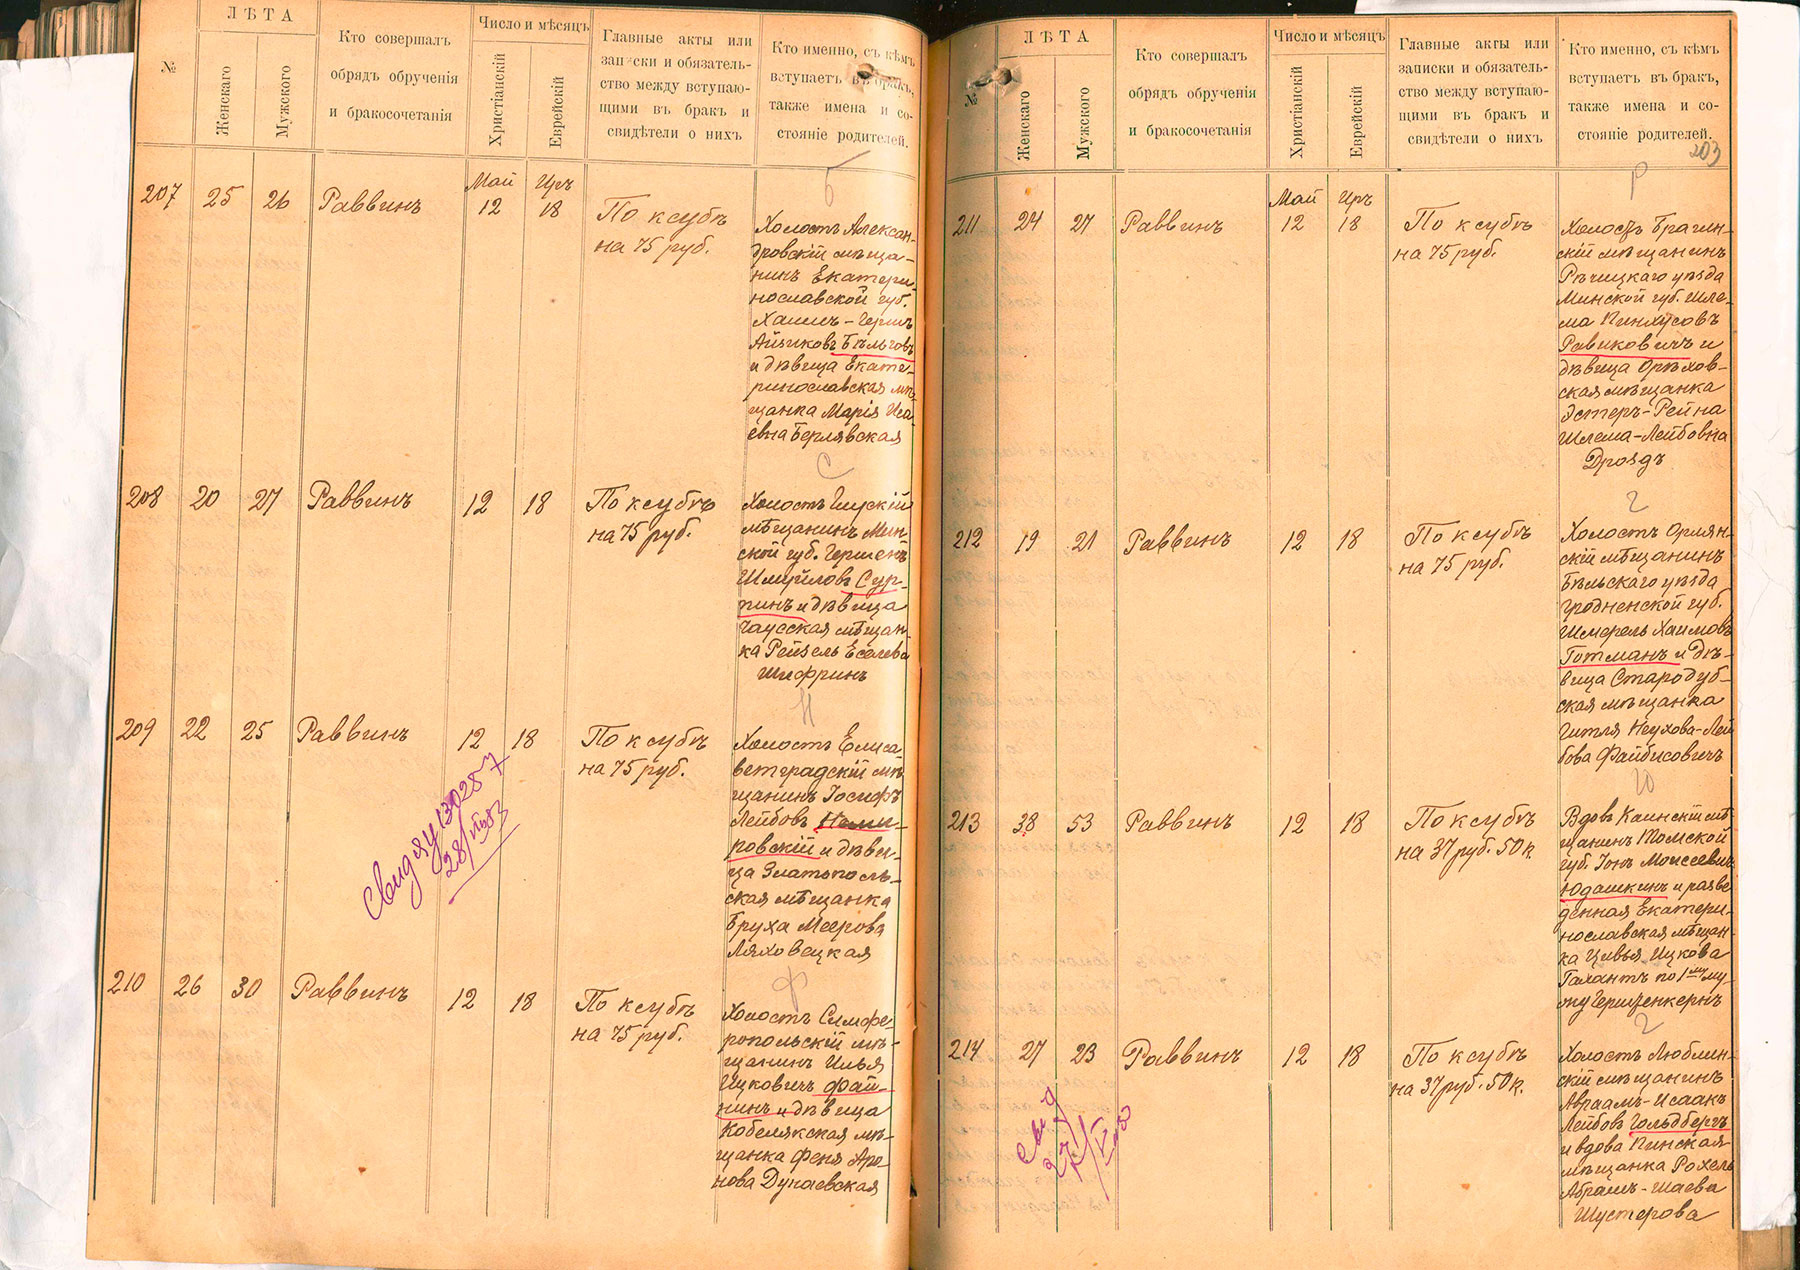 №
ЛѢТА
Женскаго
Мужского
Кто совершалъ
обрядъ обрученія
и бракосочетанія
Число и мѣсяцъ
Христіанскій
Еврейскій
Главные акты или
записки и обязатель-
ство между вступаю-
щими въ бракъ и
свидѣтели о нихъ
Кто именно, съ кѣмъ
вступаетъ въ бракъ,
также имена и со-
стояніе родителей.
Б
207 25 26 Раввинъ Май 12 Иръ 18
По ксубѣ
на 75 руб.
Холостъ Алексан-
дровскій мѣща-
нинъ Екатери-
нославской губ.
Хаимъ-Герцъ
Айзиковъ Бѣльговъ
и дѣвица Екате-
ринославская мѣ-
щанка Марія Иса-
евна Берлявская
С
208 20 27 Раввинъ 12 18
По ксубѣ
на 75 руб.
Холостъ Глускій
мѣщанинъ Мин-
ской губ. Гершенъ
Шмуйловъ Сур-
пинъ и дѣвица
Чаусская мѣщан-
ка Рейзель Еселева
Шифринъ
Н
209 22 25 Раввинъ 12 18
По ксубѣ
на 75 руб.
Холостъ Елиса-
ветградскій мѣ-
щанинъ Іосифъ
Лейбовъ Неми-
ровскій и дѣви-
ца Златополь-
ская мѣщанка
Бруха Меерова
Ляховецкая
Ф
210 26 30 Раввинъ 12 18
По ксубѣ
на 75 руб.
Холостъ Симфе-
ропольскій мѣ-
щанинъ Илья
Ицковичъ Фай-
нинъ и дѣвица
Кобелякская мѣ-
щанка Феня Аро-
нова Дунаевская
№
ЛѢТА
Женскаго
Мужского
Кто совершалъ
обрядъ обрученія
и бракосочетанія
Число и мѣсяцъ
Христіанскій
Еврейскій
Главные акты или
записки и обязатель-
ство между вступаю-
щими въ бракъ и
свидѣтели о нихъ
Кто именно, съ кѣмъ
вступаетъ въ бракъ,
также имена и со-
стояніе родителей.
203
Р
211 24 27 Раввинъ Май 12 Иръ 18
По ксубѣ
на 75 руб.
Холостъ Брагин-
скій мѣщанинъ
Рѣчицкаго уѣзда
Минской губ. Шле-
ма Пинхусовъ
Равиковичъ и
дѣвица Орѣхов-
ская мѣщанка
Эстеръ-Рейна
Шлема-Лейбовна
Дроздъ
Г
212 19 21 Раввинъ 12 18
По ксубѣ
на 75 руб.
Холостъ Орлян-
скій мѣщанинъ
Бѣльскаго уѣзда
Гродненской губ.
Шмерель Хаимовъ
Готманъ и дѣ-
вица Стародуб-
ская мѣщанка
Гитля Неухова-Лей-
бова Файбисовичъ
Ю
213 38 53 Раввинъ 12 18
По ксубѣ
на 37 руб. 50 к.
Вдовъ Каинскій мѣ-
щанинъ Томской
губ. Іонъ Моисеевичъ
Юдашкинъ и разве-
денная Екатери-
нославская мѣщан-
ка Цивья Ицкова
Гахантъ по 1му му-
жу Гершенкернъ
Г
214 27 23 Раввинъ 12 18
По ксубѣ
на 37 руб. 50 к.
Холостъ Люблин-
скій мѣщанинъ
Авраамъ-Исаакъ
Лейбовъ Гольдбергъ
и вдова Пинская
мѣщанка Рохель
Абрамъ-Шаева
Шустерова